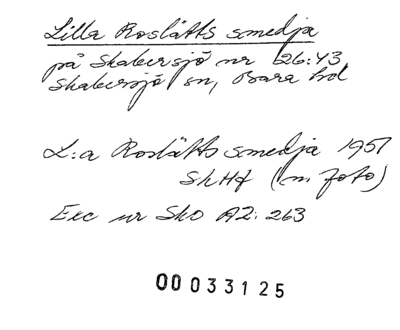 Lilla Roslätts smedja
på Skabersjö nr 26:43
Skabersjö sn, Bara hd
L:a Roslätts smedja 1957
SkHf (m. foto)
Exc ur Sko A2: 263
00033125